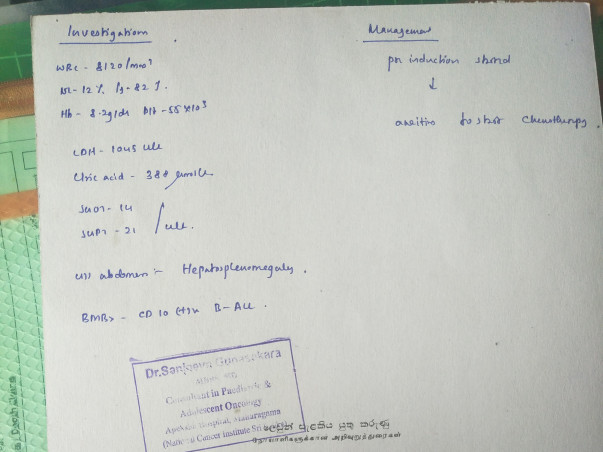 Investigations
WBC - 8120/mm³
N - 12% L - 82%
Hb - 8.2g/dl Plt - 55 x10³
LDH - 1045 u/l
Uric acid - 388 μmol/L
SGOT - 14
SGPT - 21 u/l.
USS abdomen :- Hepatosplenomegaly.
BMBx - CD 10 (+)ve B-ALL.
Management
pre induction started
↓
awaiting to start Chemotherapy.
Dr.Sanjeewa Gunasekara
Consultant in Paediatric &
Adolescent Oncology
Apeksha Hospital, Maharagama
(National Cancer Institute Sri